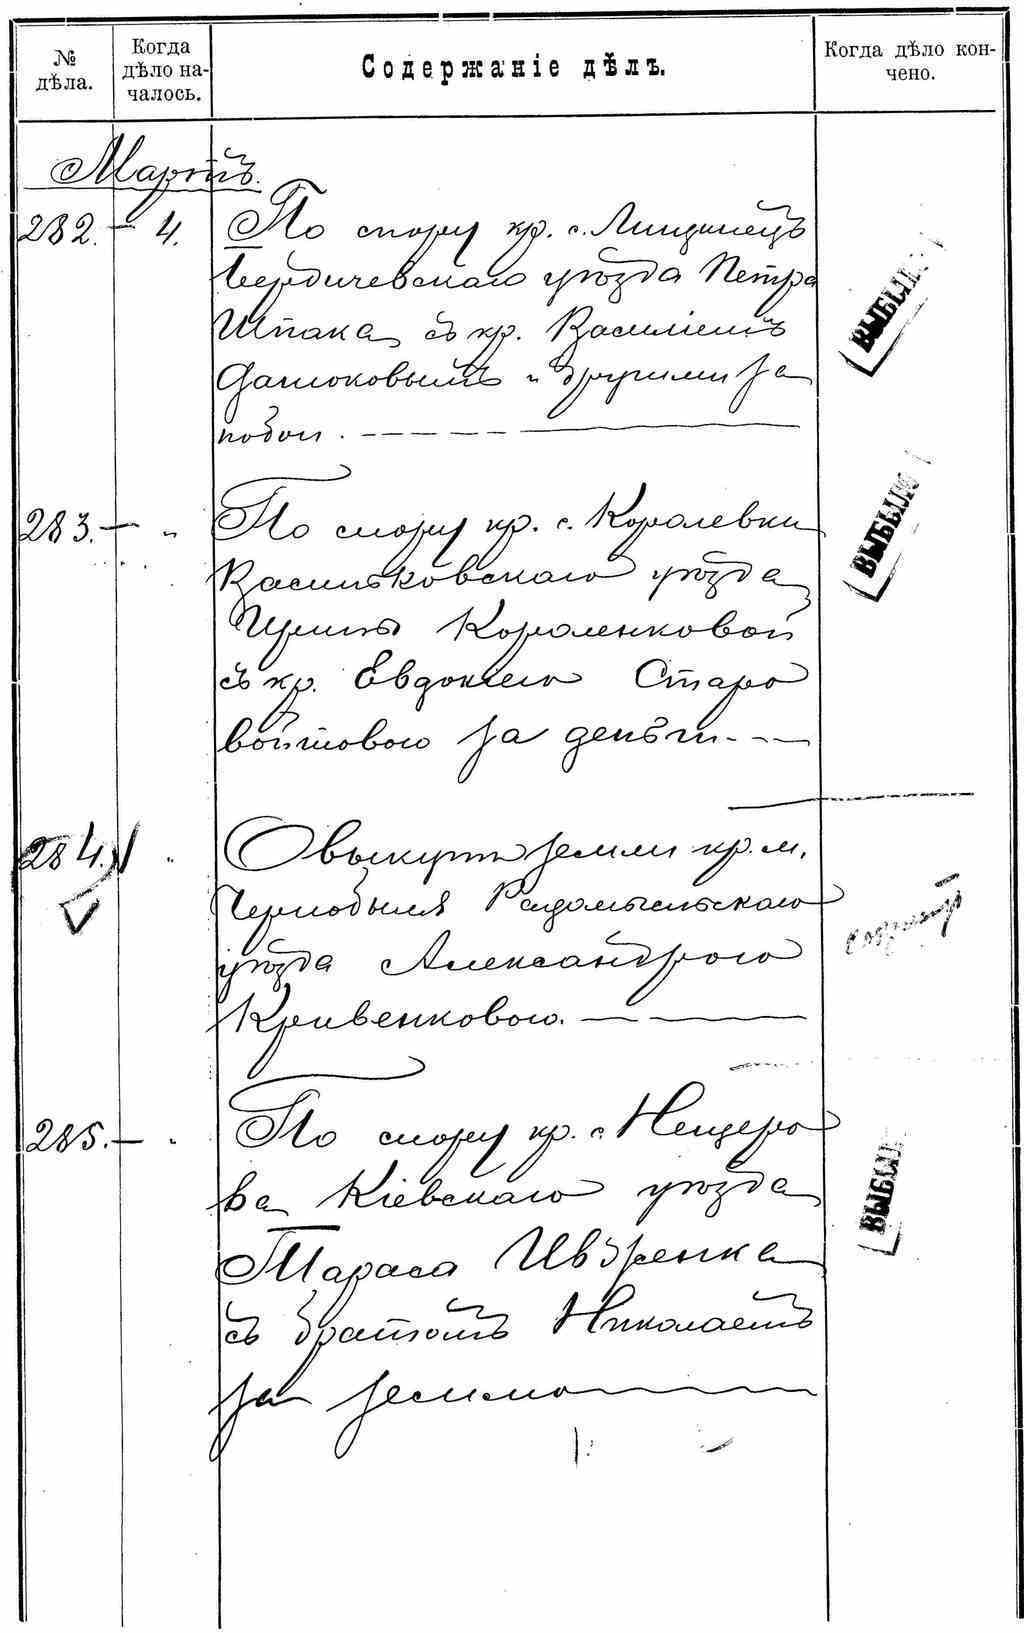 № дѣла.
Когда дѣло на-
чалось.
Содержаніе дѣлъ.
Когда дѣло кон-
чено.
Мартъ.
282. — 4. По спору кр. с.
Бердичевскаго уѣзда Петра
Шпака съ кр. Василіемъ
и другими за
побои. — — — —
ВЫБЫЛО
283. — „ По спору кр. с. Королевки
Васильковскаго уѣзда
Ирины Короленковой
съ кр. Евдокіею Старо
войтовою за деньги - - —
ВЫБЫЛО
284. „ О выкупѣ земли кр. м.
Чернобыля Радомысльскаго
уѣзда Александрою
Кривенковою. — — —
285. — „ По спору кр. с. Нещеро
ва Кіевскаго уѣзда
Тараса Ивченка
съ братомъ Николаемъ
за землю
ВЫБЫЛ